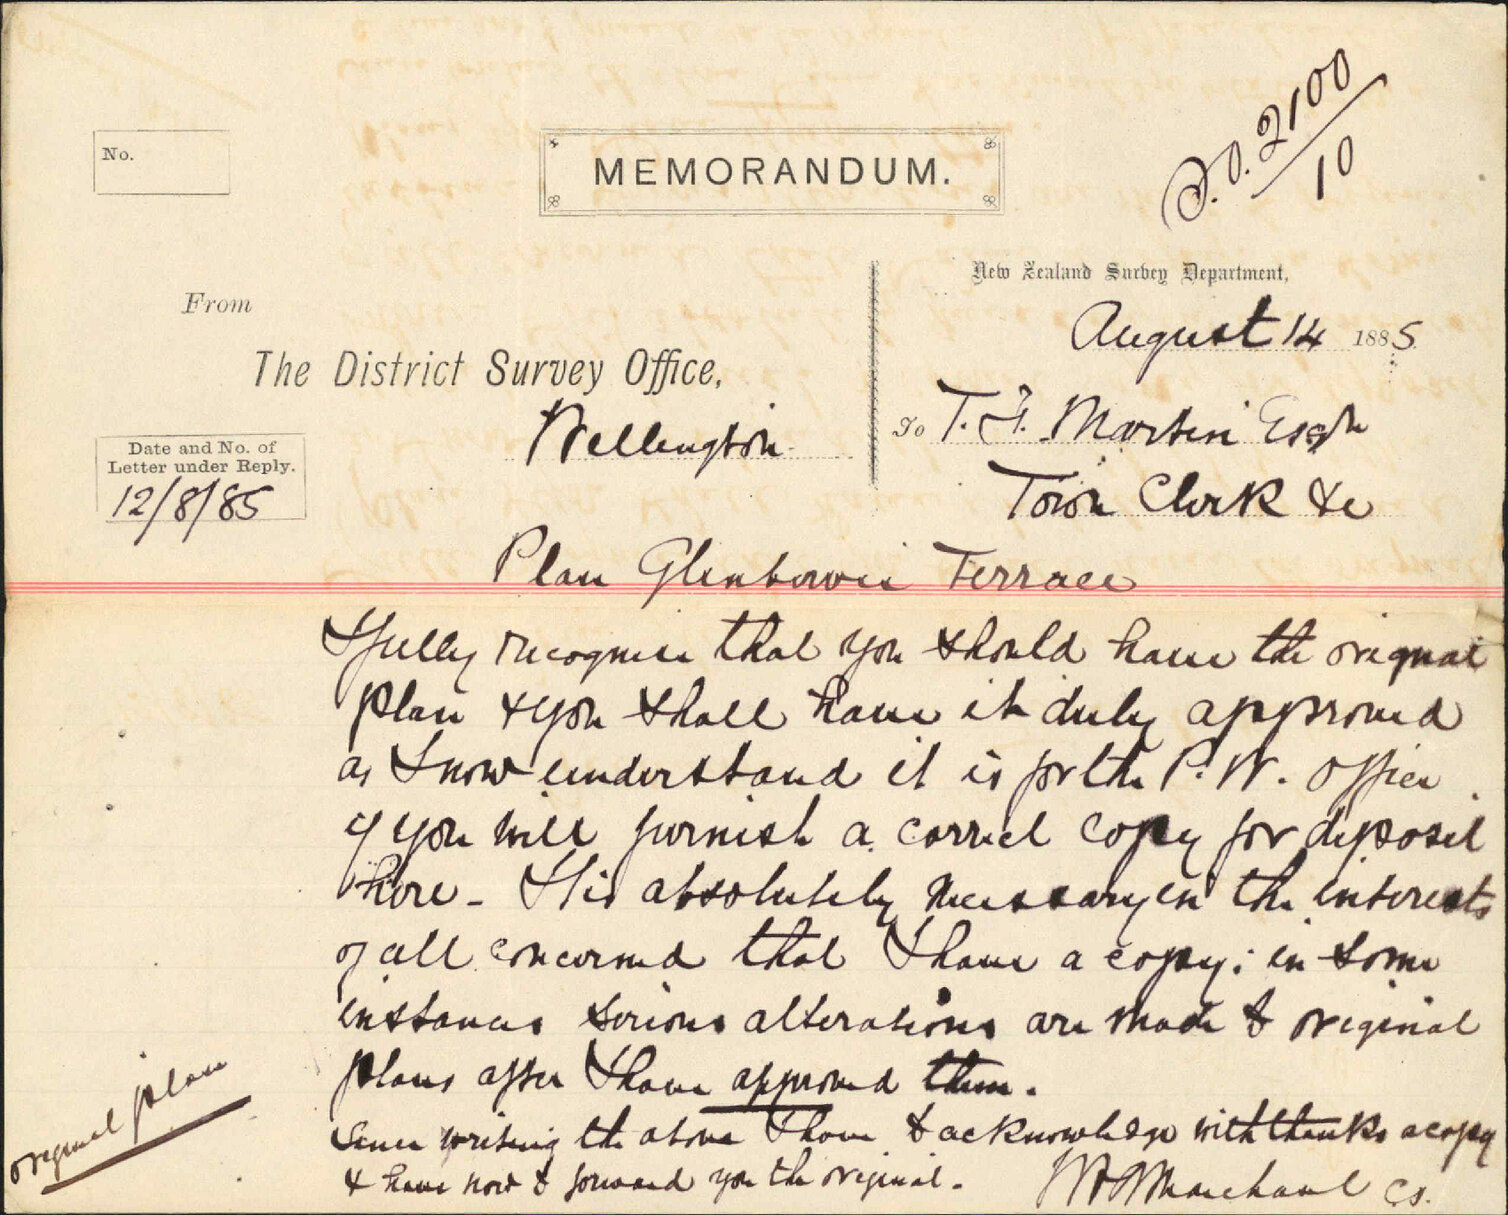 S.O. 2100/10
No.
MEMORANDUM.
New Zealand Survey Department,
August 14 1885
From
The District Survey Office,
Wellington
To T. F. Martin Esqr
Town Clerk &c
Date and No. of
Letter under Reply.
12/8/85
Plan Glenbervie Terrace
I fully recognise that you should have the original
plan & you shall have it duly approved
as I now understand it is for the P. W. Office
if you will furnish a correct copy for deposit
here - It is absolutely necessary in the interests
of all concerned that I have a copy; in some
instances serious alterations are made to original
plans after I have approved them.
Since writing the above I have to acknowledge with thanks a copy
& have now to forward you the original.
J W A Marchant CS.
original plan